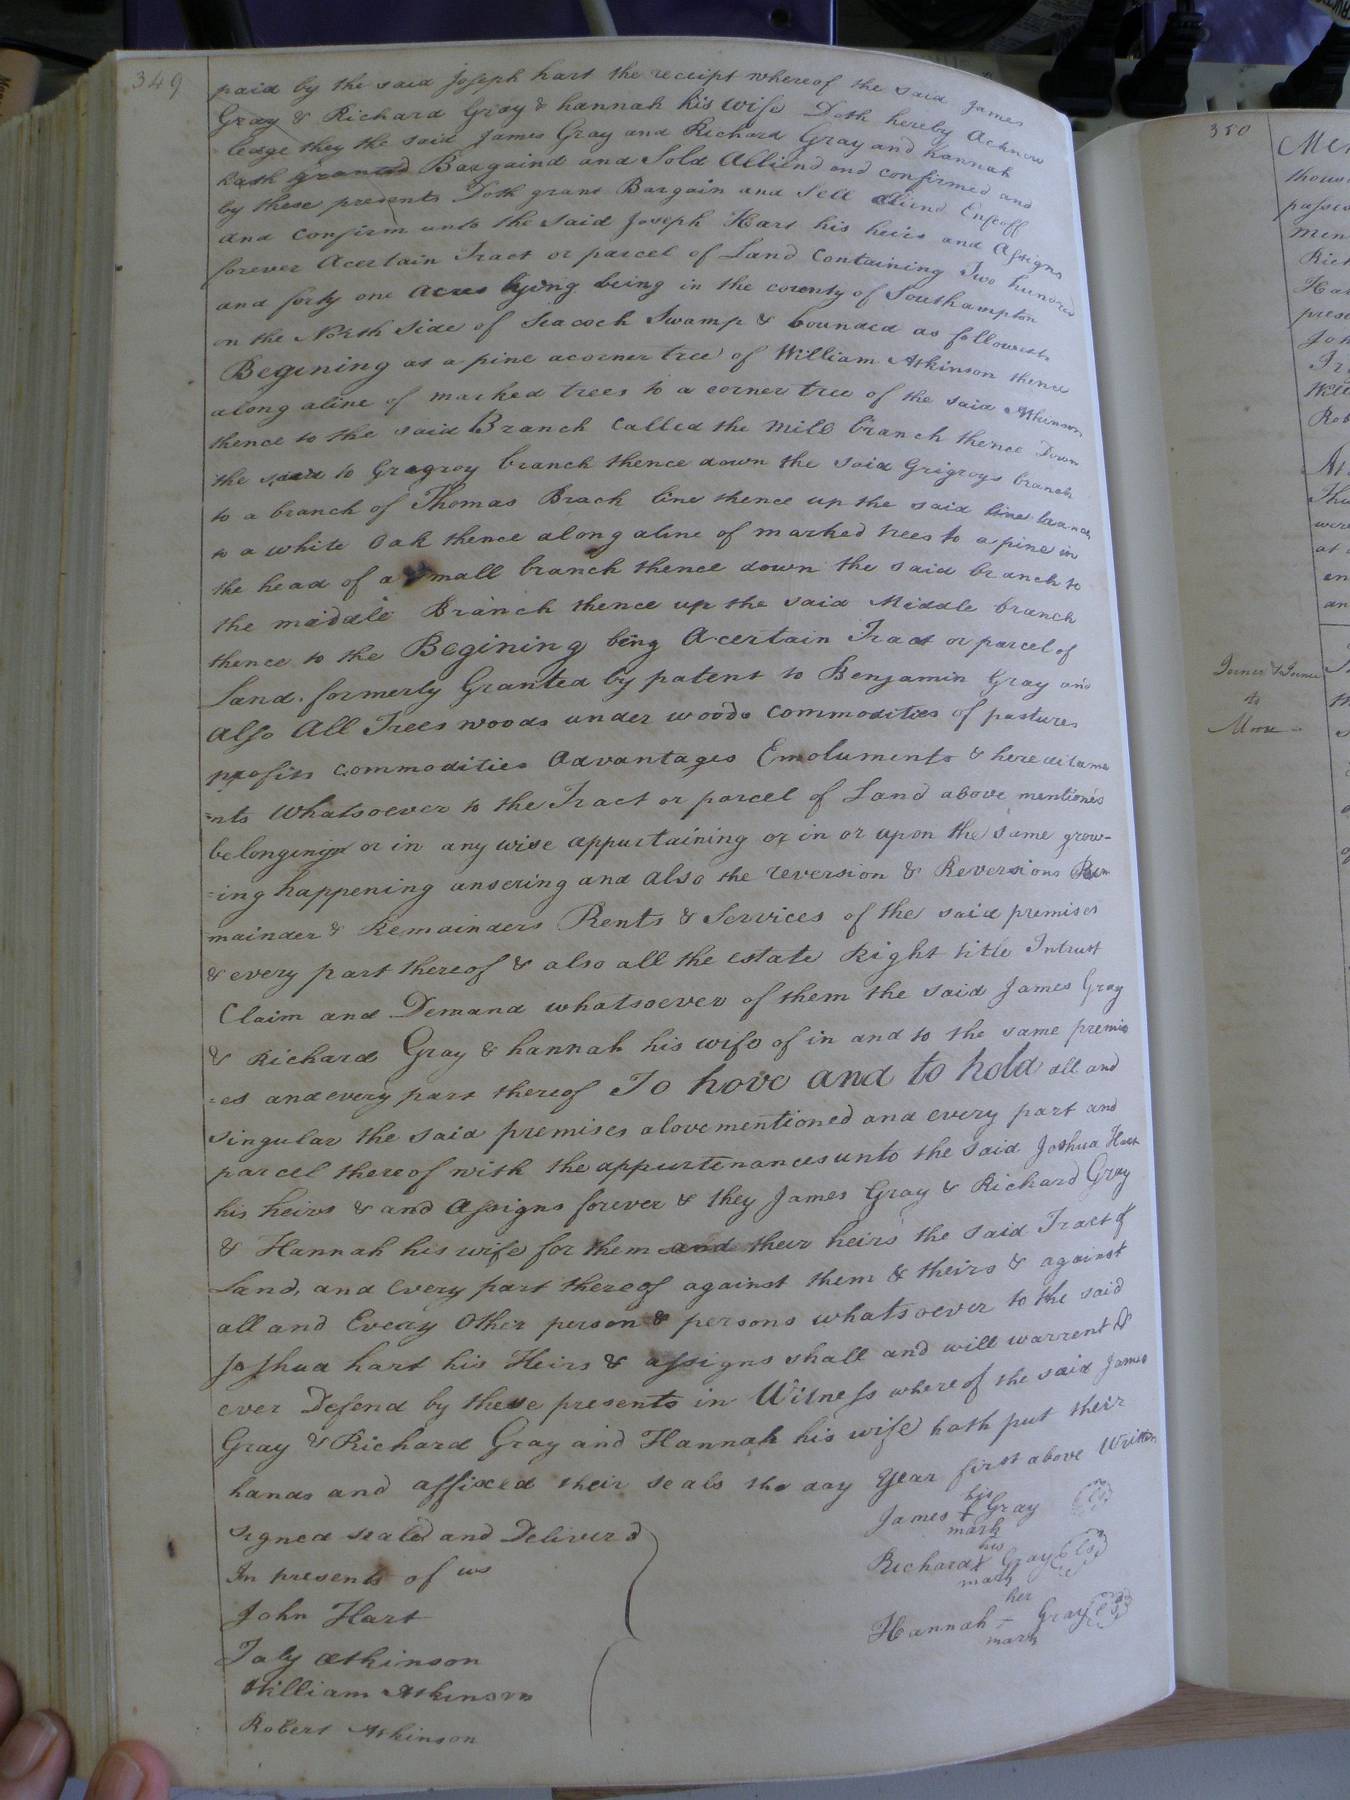 349
paid by the said Joseph hart the receipt whereof the said James
Gray & Richard Gray & hannah his wife Doth hereby Acknow
ledge they the said James Gray and Richard Gray and hannah
hath granted Bargaind and Sold Alliend and confirmed and
by these presents Doth grant Bargain and Sell aliend Enfeoff
and confirm unto the said Joseph Hart his heirs and Assigns
forever Acertain Tract or parcel of Land Containing Two hundred
and forty one acres lying being in the county of Southampton
on the North Side of Seacock Swamp & bounded as followeth
Begining at a pine acorner tree of William Atkinson thence
along aline of marked trees to a corner tree of the said Atkinson
thence to the said Branch Called the Mill branch thence Down
the said to Gregroy branch thence down the said Grigroys branch
to a branch of Thomas Brack line thence up the said line branch
to a white Oak thence along aline of marked trees to a pine in
the head of a small branch thence down the said branch to
the middle Branch thence up the said Middle branch
thence to the Begining being Acertain Tract or parcel of
Land formerly Granted by patent to Benjamin Gray and
Also All Trees woods under woods commodities of pastures
profits commodities Advantages Emoluments & hereditame
-nts Whatsoever to the Tract or parcel of Land above mentioned
belonging or in any wise appurtaining or in or upon the same grow-
-ing happening ansering and also the reversion & Reversions Rem
mainder & Remainders Rents & Services of the said premises
& every part thereof & also all the estate Right title Intrust
Claim and Demand whatsoever of them the said James Gray
& Richard Gray & hannah his wife of in and to the same premis
-es and every part thereof To have and to hold all and
singular the said premises abovementioned and every part and
parcel thereof with the appurtenances unto the said Joshua Hart
his heirs & and Assigns forever & they James Gray & Richard Gray
& Hannah his wife for them and their heirs the said Tract of
Land, and every part thereof against them & theirs & against
all and Every Other person & persons whatsoever to the said
Joshua hart his Heirs & assigns shall and will warrent &
ever Defend by these presents in Witness whereof the said James
Gray & Richard Gray and Hannah his wife hath put their
hands and affixed their seals the day year first above Written
his
James + Gray
mark
his
Richard X Gray
mark
her
Hannah + Gray
mark
signed sealed and Deliverd
In presents of us
John Hart
Atkinson
William Atkinson
Robert Atkinson
350
thous
passed
men
Rich
Har
prese
Joh
Rob
were
at
en
an
to